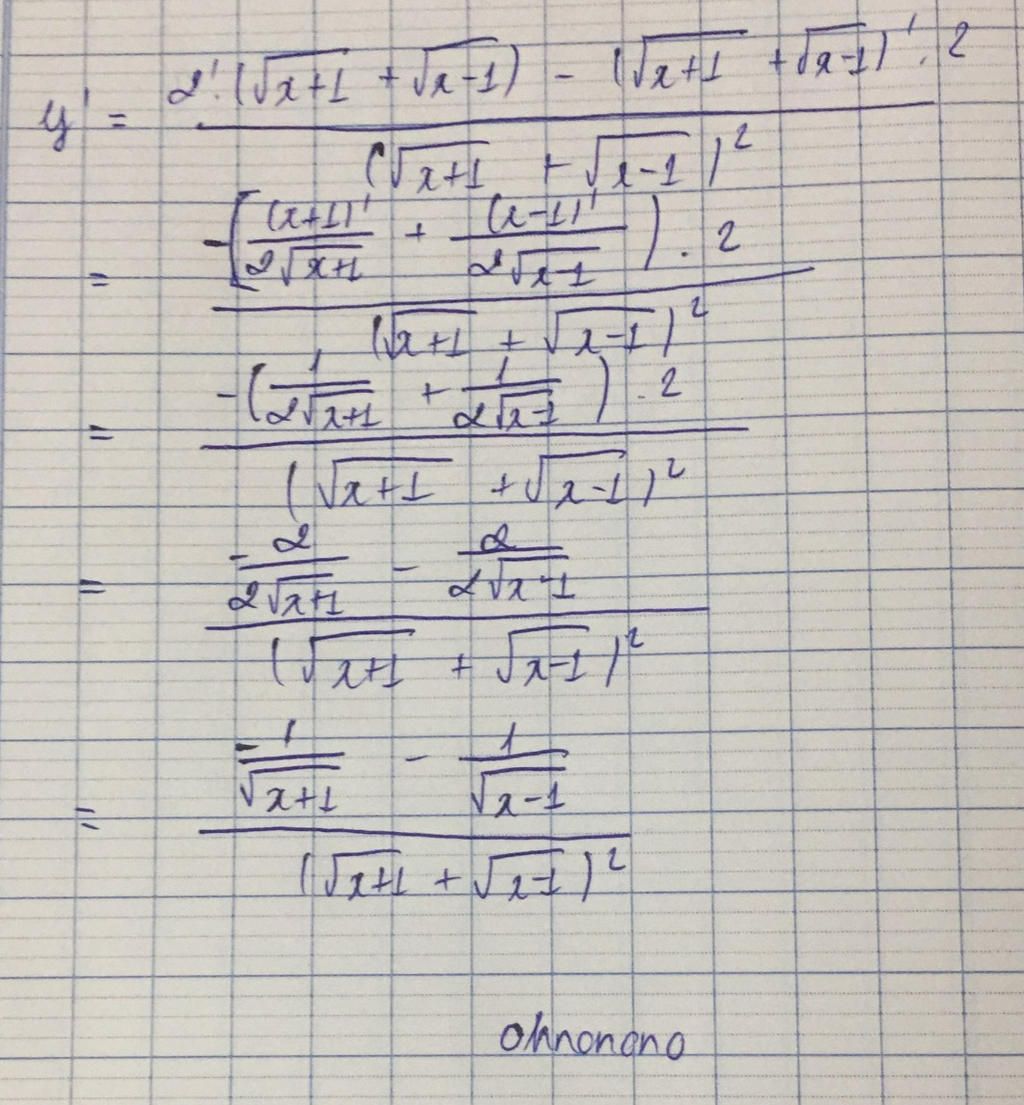 y' = \frac{2'.(\sqrt{x+1} + \sqrt{x-1}) - (\sqrt{x+1} + \sqrt{x-1})'.2}{(\sqrt{x+1} + \sqrt{x-1})^2}
= \frac{-[\frac{(x+1)'}{2\sqrt{x+1}} + \frac{(x-1)'}{2\sqrt{x-1}}).2}{(\sqrt{x+1} + \sqrt{x-1})^2}
= \frac{-(\frac{1}{2\sqrt{x+1}} + \frac{1}{2\sqrt{x-1}}).2}{(\sqrt{x+1} + \sqrt{x-1})^2}
= \frac{-\frac{2}{2\sqrt{x+1}} - \frac{2}{2\sqrt{x-1}}}{(\sqrt{x+1} + \sqrt{x-1})^2}
= \frac{-\frac{1}{\sqrt{x+1}} - \frac{1}{\sqrt{x-1}}}{(\sqrt{x+1} + \sqrt{x-1})^2}
ohnonono